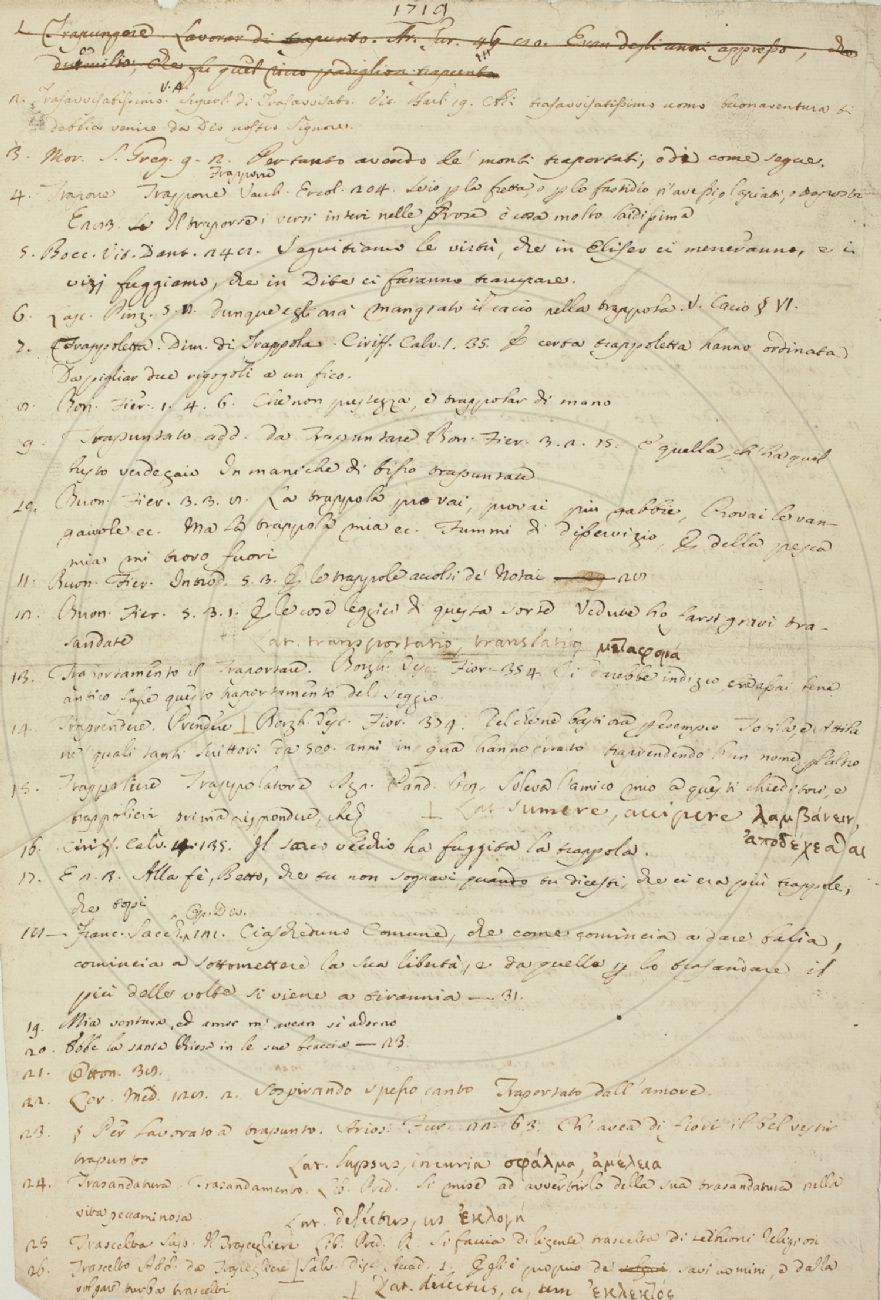 1719
1. Trapungere Lavorar di trapunto. Ar. Fur. 46 Eran degli anni appresso, che
duomilia, che fu quel ricco padiglion trapunto
2. Trasavvisatissimo. Superl. di Trasavvisato. Vit. Barl. 19. trasavvisatissimo uomo buonaventura ti
debbia venire da Dio nostro Signore.
3. Mor. S. Greg. 9. 2. Pertanto avendo de' monti traportati, ode come segue.
Trapporre
4. Traporre Trapporre Varch. Ercol. 204. o lo fastidio n'avessi lasciati,
E 223. Il traporre i versi interi nelle Prose è cosa molto laidissima
5. Bocc. Vit. Dant. 242. Seguitiamo le virtù, che in Eliseo ci meneranno, e i
vizj fuggiamo, che in Dite ci faranno trarupare.
6. Lasc. Pinz. 5. 8. Dunque egli arà mangiato il cacio nella trappola. V. Cacio § VI.
7. Trappoletta. Dim. di Trappola. Ciriff. Calv. 1. 35. E certa trappoletta hanno ordinata
Da pigliar due rigogoli a un fico.
8. Bon. Fier. 1. 4. 6. Che non prestezza, e trappolar di mano
9. Trapuntato add. da Trapuntare Bon. Fier. 3. 2. 15. E quella, ch'ha quel
busto verdegaio In maniche di bisso trapuntate
10. Buon. Fier. 3. 3. 8. La trappola provai, provai più gabbie, Provai le van-
gaiuole ec. Ma la trappola mia ec. Fummi di disservizio, E della pesca
mia mi trovo fuori
11. Buon. Fier. Introd. 5. 3. E le trappole accolsi de' Notai 28
12. Buon. Fier. 5. 3. 1. E le cose leggieri di questa sorte Vedute ho farsi gravi tra-
sandate
Lat. transportatio, translatio μεταφορά
13. Traportamento il Traportare. Borgh. Vesc. Fior. 354. Ci darebbe indizio, ed assai bene
antico fusse questo traportamento del seggio.
14. Traprendere. Prendere ⊥ Borgh. Vesc. Fior. 374. Del che ne basti ora per esempio Totila, e Attila
ne' quali tanti scrittori da 500. anni in qua hanno errato traprendendo l'un nome per l'altro
15. Trappoliere Trappolatore Agn. Pand. Soleva l'amico mio a questi chieditori, e
trappolieri prima rispondere, che
⊥ Lat. sumere, accipere λαμβάνειν,
ἀποδέχεσθαι
16. Ciriff. Calv. 4. 135. Il sorco vecchio ha fuggita la trappola.
17. E 2. 2. Alla fè, Betto, che tu non sognavi quando tu dicesti, che ci era più trappole,
che topi
Op. Div.
18 — Franc. Sacch. 121. Ciascheduno Comune, che come comincia a dare balìa,
comincia a sottomettere la sua libertà, e da quella per lo trasandare il
più delle volte si viene a tirannia — 31.
19. Mia ventura, ed amor m'avean sì adorno
20. Ebbe la santa Chiesa in le sue braccia — 23.
21. 38.
22. Lor. Med. 128. 2. Sospirando spesso canto Traportato dall'amore.
23. § Per Lavorato a trapunto. Arios. Fur. 22. 63. Ch'avea di fiori il bel vestir
trapunto
Lat. lapsus, incuria σφάλμα, ἀμέλεια
24. Trasandatura Trasandamento. Lib. Pred. Si mise ad avvertirlo della sua trasandatura nella
vita peccaminosa
Lat. delectus, us ἐκλογή
25 Trascelta Sust. Il Trascegliere Lib. Pred. R. Si faccia diligente trascelta di religion
26. Trascelto Add. da Trascegliere ⊥ Salv. Disc. 1. E gli è proprio de savi uomini, e dalla
volgare turba trascelti
⊥ Lat. delectus, a, um ἐκλεκτός